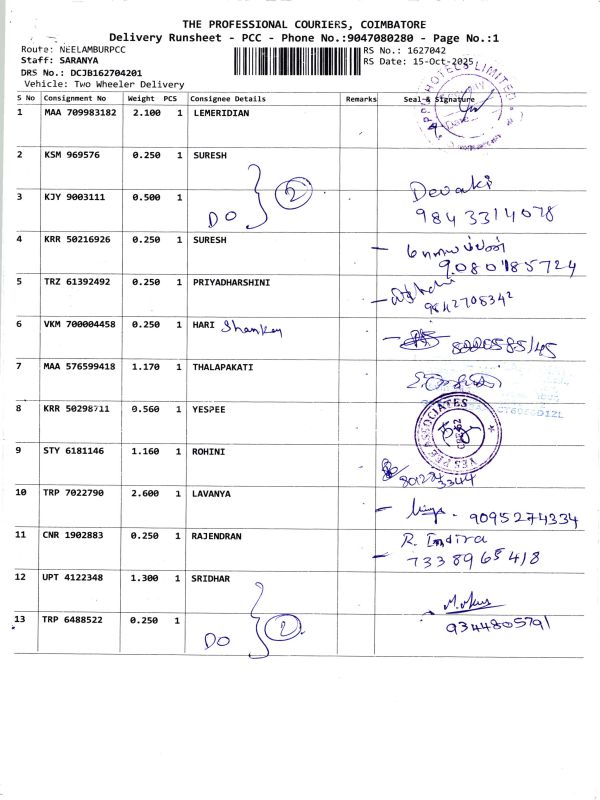 THE PROFESSIONAL COURIERS, COIMBATORE
Delivery Runsheet - PCC - Phone No.:9047080280 - Page No.:1
Route: NEELAMBURPCC RS No.: 1627042
Staff: SARANYA RS Date: 15-Oct-2025
DRS No.: DCJB162704201
Vehicle: Two Wheeler Delivery
HOTELS LIMITED
S No Consignment No Weight PCS Consignee Details Remarks Seal & Signature
1 MAA 709983182 2.100 1 LEMERIDIAN
2 KSM 969576 0.250 1 SURESH
3 KJY 9003111 0.500 1 DO 2 Devaki
9843314078
4 KRR 50216926 0.250 1 SURESH
9080785724
5 TRZ 61392492 0.250 1 PRIYADHARSHINI
9842708342
6 VKM 700004458 0.250 1 HARI Shankar
7 MAA 576599418 1.170 1 THALAPAKATI
8 KRR 50298711 0.560 1 YESPEE
YES PEE ASSOCIATES
9 STY 6181146 1.160 1 ROHINI
10 TRP 7022790 2.600 1 LAVANYA
9095274334
11 CNR 1902883 0.250 1 RAJENDRAN R. Indira
7338965418
12 UPT 4122348 1.300 1 SRIDHAR
13 TRP 6488522 0.250 1 DO 2 9344805791